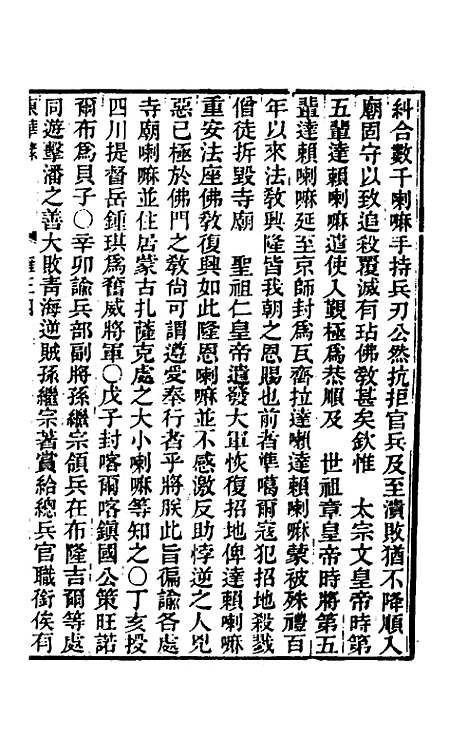 糾合數千喇嘛手持兵刃公然抗拒官兵及至潰敗猶不降順入
廟固守以致追殺覆滅有玷佛敎甚矣欽惟　太宗文皇帝時第
五輩達賴喇嘛遣使入覲極爲恭順及　世祖章皇帝時將第五
輩達賴喇嘛延至京師封爲瓦齊拉達喇達賴喇嘛蒙被殊禮百
年以來法敎興隆皆我朝之恩賜也前者準噶爾寇犯招地殺戮
僧徒拆毀寺廟　聖祖仁皇帝遣發大軍恢復招地俾達賴喇嘛
重安法座佛敎復興如此隆恩喇嘛並不感激反助悖逆之人兇
惡已極於佛門之敎尚可謂遵受奉行者乎將朕此旨徧諭各處
寺廟喇嘛並住居蒙古扎薩克處之大小喇嘛等知之〇丁亥授
四川提督岳鍾琪爲奮威將軍〇戊子封喀爾喀鎭國公策旺諾
爾布爲貝子〇辛卯諭兵部副將孫繼宗領兵在布隆吉爾等處
同遊擊潘之善大敗靑海逆賊孫繼宗著賞給總兵官職銜俟有
東華錄